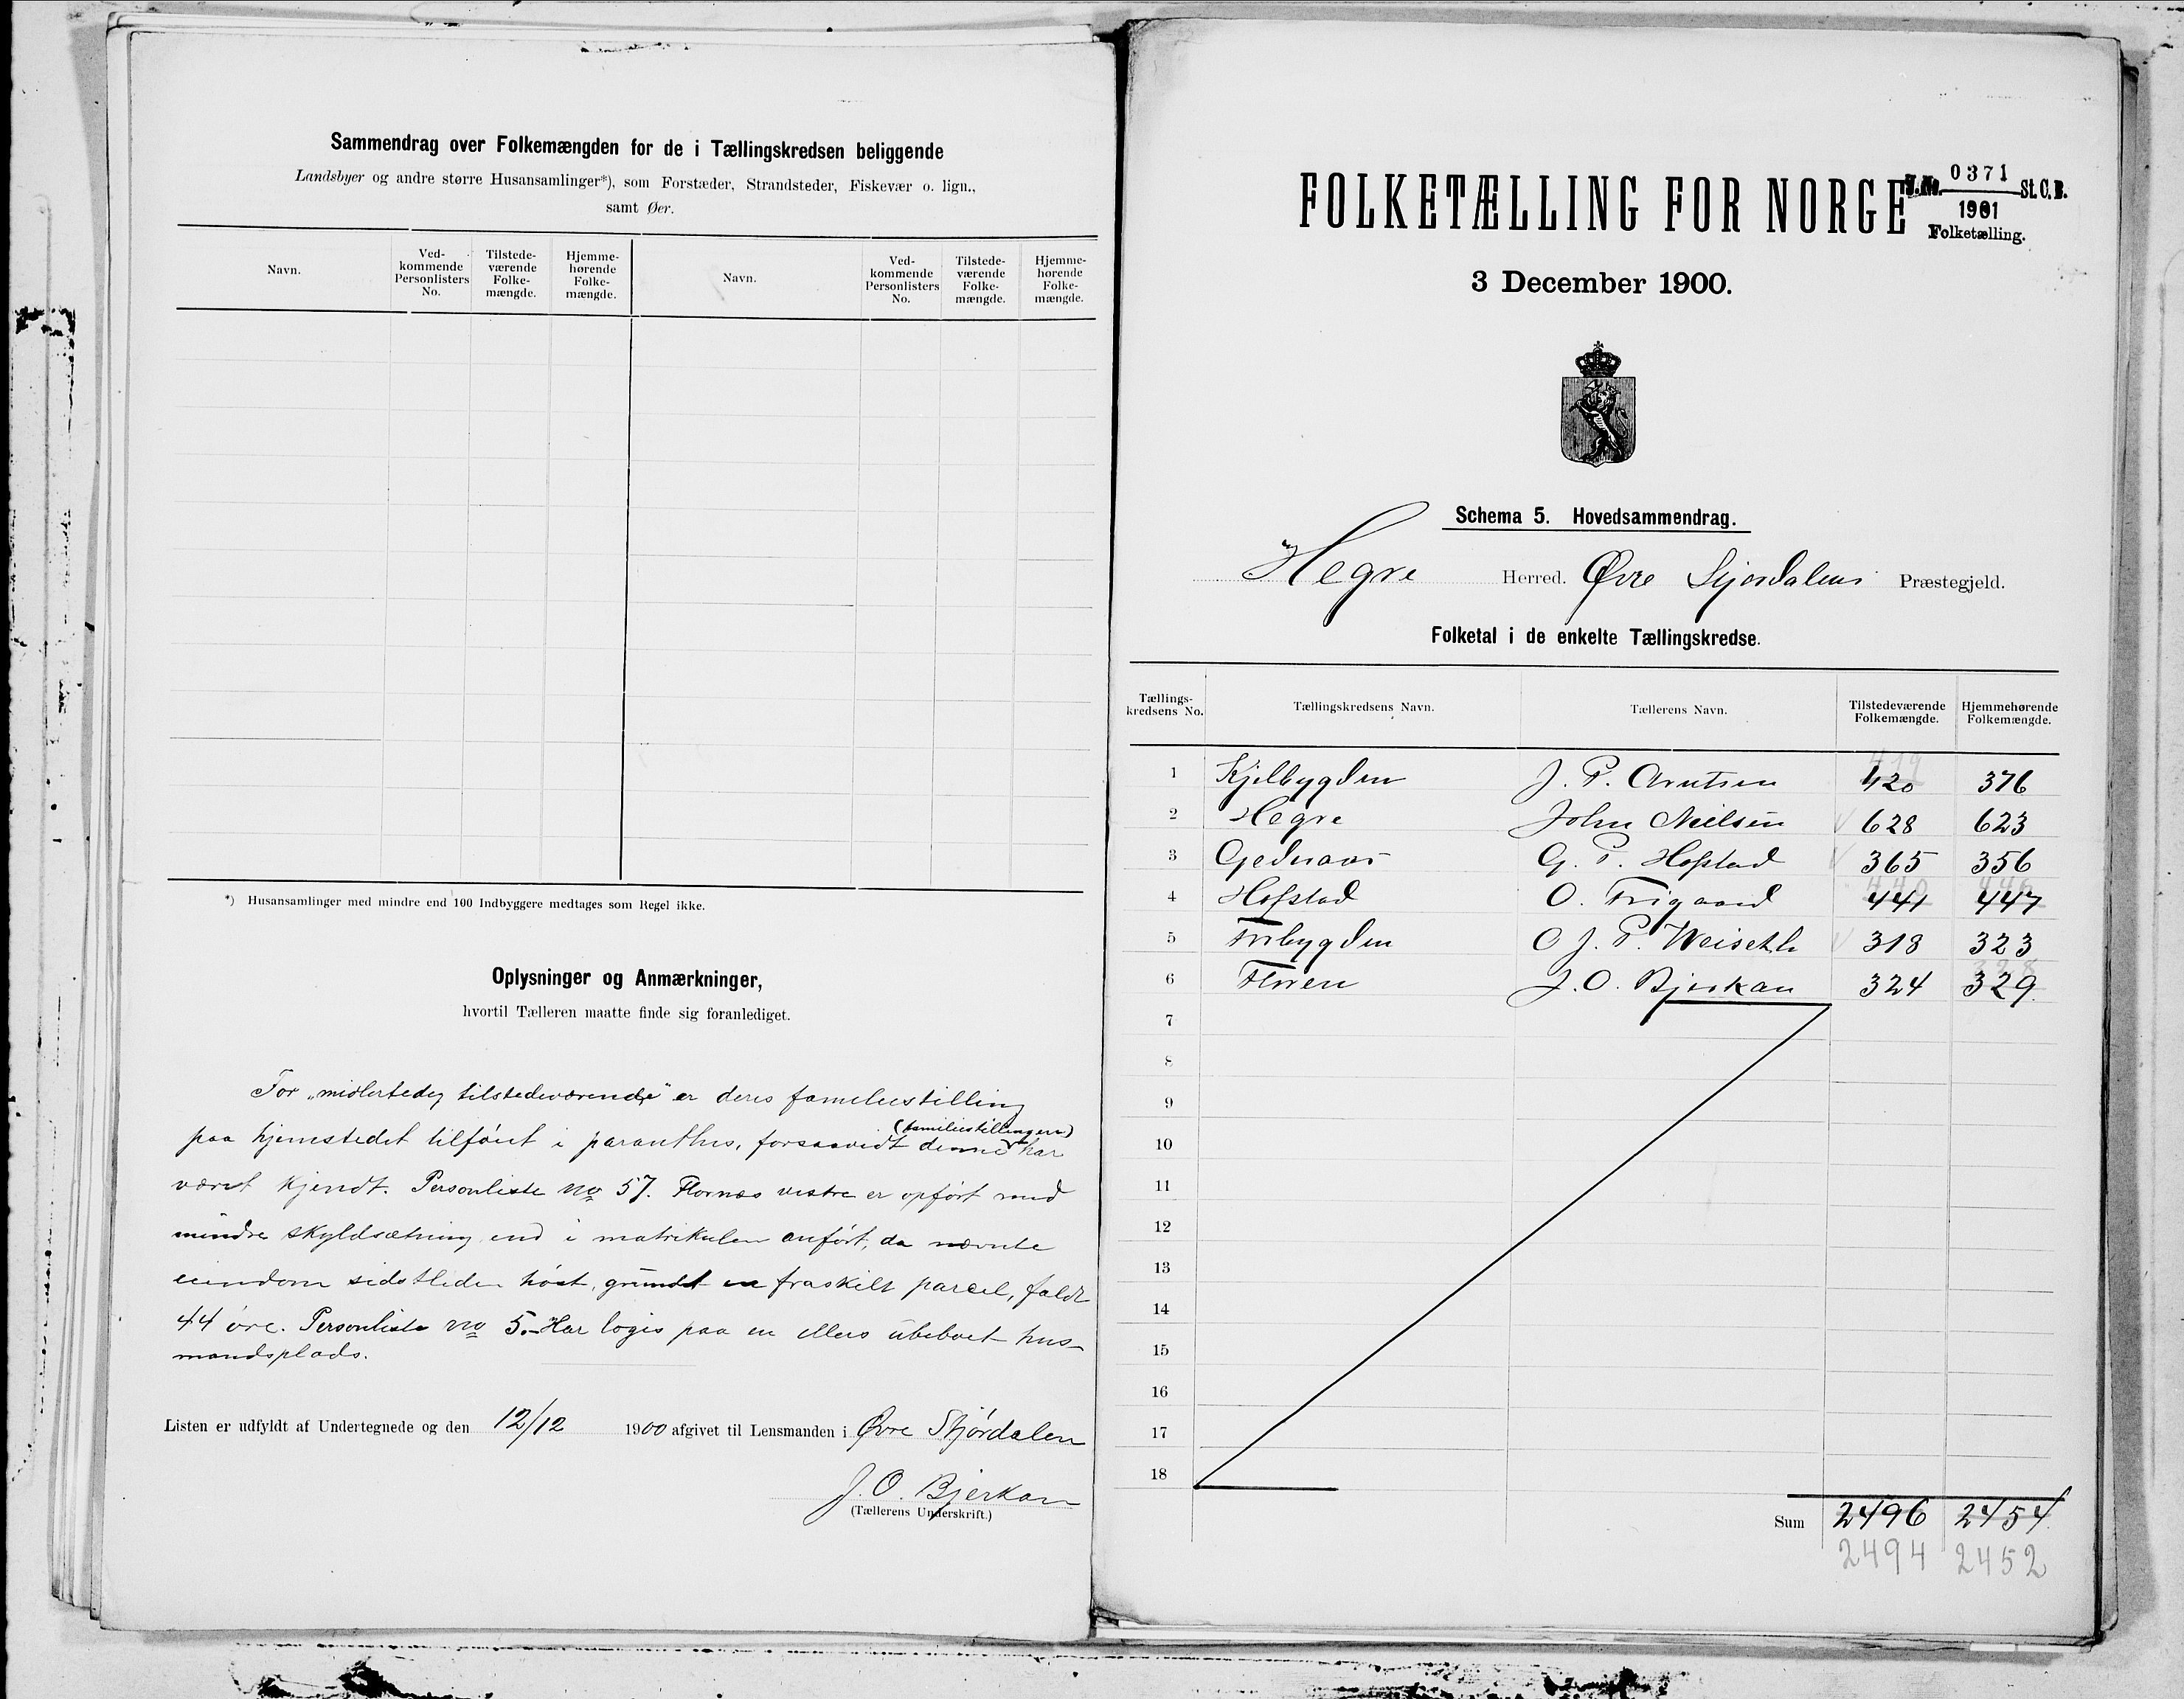 Sammendrag over Folkemængden for de i Tællingskredsen beliggende
Landsbyer og andre større Husansamlinger*), som Forstæder, Strandsteder, Fiskevær o. lign.,
samt Øer.
Navn. Ved-kommende Personlisters No. Tilstede-værende Folke-mængde. Hjemme-hørende Folke-mængde. Navn. Ved-kommende Personlisters No. Tilstede-værende Folke-mængde. Hjemme-hørende Folke-mængde.
*) Husansamlinger med mindre end 100 Indbyggere medtages som Regel ikke.
Oplysninger og Anmærkninger,
hvortil Tælleren maatte finde sig foranlediget.
For „midlertedig tilstedeværende" er deres familiestilling
(familiestillingen)
paa hjemstedet tilføiet i paranthes, forsaavidt denne har
været kjendt. Personliste No 57. Flornes vestre er opført med
mindre skyldsætning end i matrikulen anført, da nævnte
eiendom sidstleden høst, grundet en fraskilt parcel, faldt
44 øre. Personliste No 5. Har logis paa en ellers ubeboet hus-
mandsplads.
Listen er udfyldt af Undertegnede og den 12/12 1900 afgivet til Lensmanden i Øvre Stjørdalen
J. O. Bjerkan
(Tællerens Underskrift.)
FOLKETÆLLING FOR NORGE
J. No. 0371 St. C. B.
1901
Folketælling.
3 December 1900.
Schema 5. Hovedsammendrag.
Hegre Herred. Øvre Stjørdalens Præstegjeld.
Folketal i de enkelte Tællingskredse.
Tællings-kredsens No. Tællingskredsens Navn. Tællerens Navn. Tilstedeværende Folkemængde. Hjemmehørende Folkemængde.
419
1 Kjelbygden J. P. Arntsen 420 376
2 Hegre John Nielsen 628 623
3 G. P. Hofstad 365 356
440 446
4 Hofstad O. Trøgaard 441 447
5 Frubygden O J. P. Weiseth 318 323
328
6 Floren J. O. Bjerkan 324 329
7
8
9
10
11
12
13
14
15
16
17
18
Sum 2496 2454
2494 2452